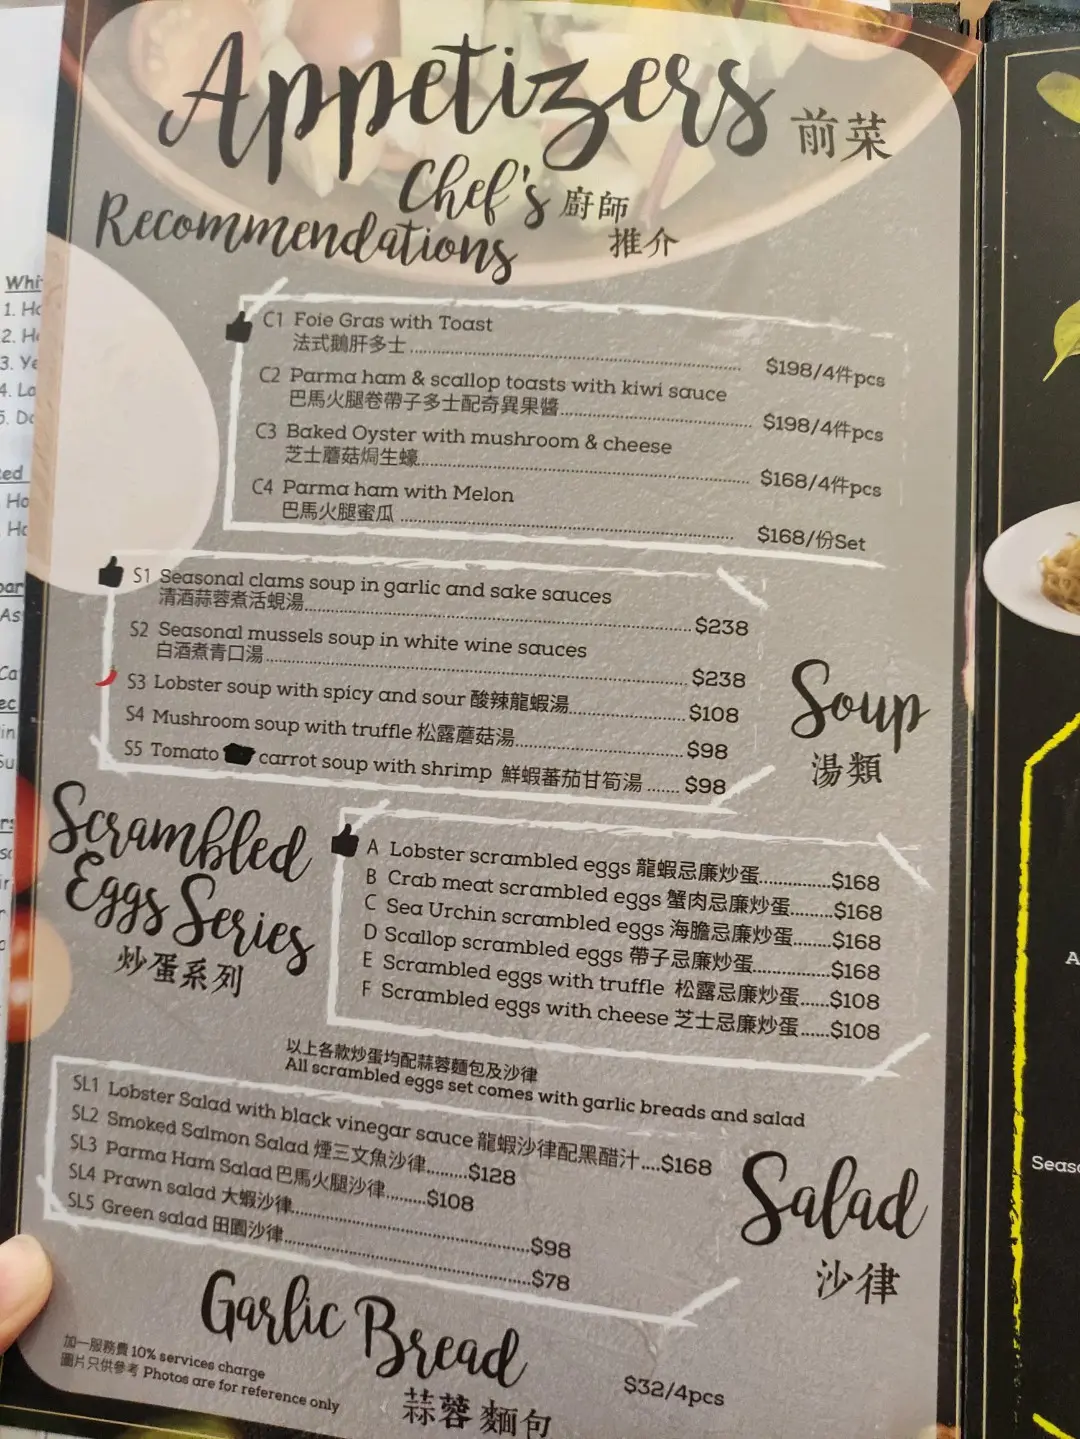 Appetizers 前菜
Chef's 廚師
Recommendations 推介
C1 Foie Gras with Toast
法式鵝肝多士 $198/4件pcs
C2 Parma ham & scallop toasts with kiwi sauce
巴馬火腿卷帶子多士配奇異果醬 $198/4件pcs
C3 Baked Oyster with mushroom & cheese
芝士蘑菇焗生蠔 $168/4件pcs
C4 Parma ham with Melon
巴馬火腿蜜瓜 $168/份Set
S1 Seasonal clams soup in garlic and sake sauces
清酒蒜蓉煮活蜆湯 $238
S2 Seasonal mussels soup in white wine sauces
白酒煮青口湯 $238
S3 Lobster soup with spicy and sour 酸辣龍蝦湯 $108
S4 Mushroom soup with truffle 松露蘑菇湯 $98
S5 Tomato carrot soup with shrimp 鮮蝦蕃茄甘筍湯 $98
Soup
湯類
Scrambled
Eggs Series
炒蛋系列
A Lobster scrambled eggs 龍蝦忌廉炒蛋 $168
B Crab meat scrambled eggs 蟹肉忌廉炒蛋 $168
C Sea Urchin scrambled eggs 海膽忌廉炒蛋 $168
D Scallop scrambled eggs 帶子忌廉炒蛋 $168
E Scrambled eggs with truffle 松露忌廉炒蛋 $108
F Scrambled eggs with cheese 芝士忌廉炒蛋 $108
以上各款炒蛋均配蒜蓉麵包及沙律
All scrambled eggs set comes with garlic breads and salad
SL1 Lobster Salad with black vinegar sauce 龍蝦沙律配黑醋汁 $168
SL2 Smoked Salmon Salad 煙三文魚沙律 $128
SL3 Parma Ham Salad 巴馬火腿沙律 $108
SL4 Prawn salad 大蝦沙律 $98
SL5 Green salad 田園沙律 $78
Salad
沙律
Garlic Bread
蒜蓉麵包 $32/4pcs
加一服務費 10% services charge
圖片只供參考 Photos are for reference only